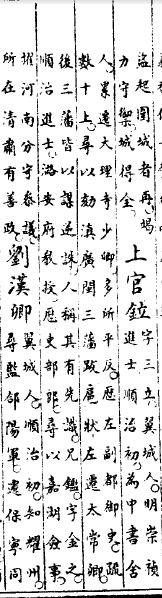 盜起圍城者再竭
力守禦城得全
上官鉝
字三立翼城人明崇禎
進士順治初為中書舍
人累遷大理寺少卿多所平反歷左副都御史疏
數十上尋以劾滇廣閩三藩跋扈狀左遷太常卿
後三藩皆以謀逆誅人稱其有先識兄鑑字金之
順治進士潞安府教授歷吏部郎尋以嘉湖僉事
擢河南分守參議
所在清肅有善政
劉漢卿
翼城人順治初知耀州
尋監郃陽軍遷保寧同